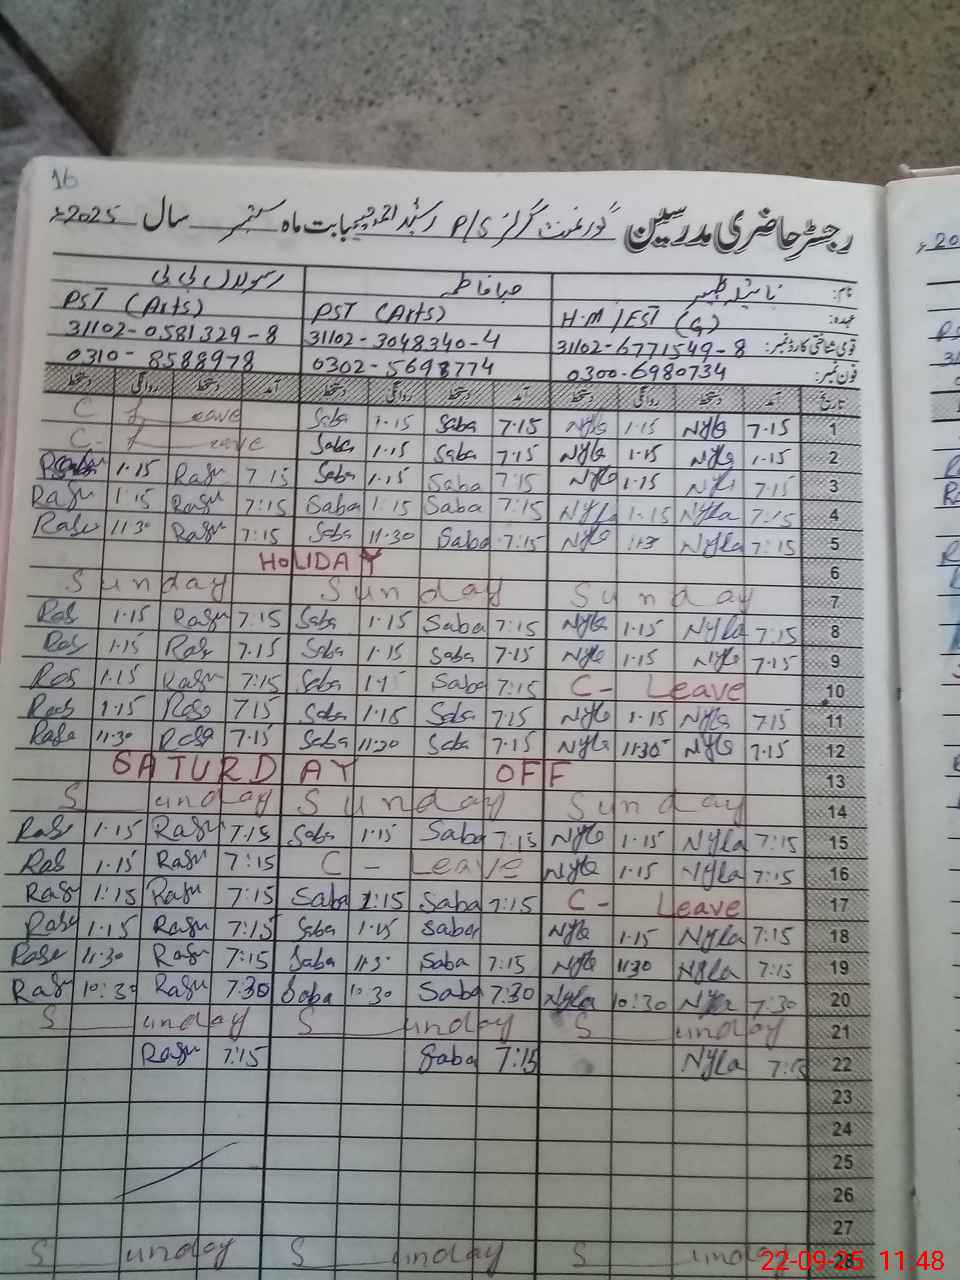 16
رجسٹر حاضری مدرسین گورنمنٹ گرلز P/S رشید احمد بابت ماہ ستمبر سال 2025ء
نام: نائیلہ ظہیر صبا فاطمہ رسولاں بی بی
عہدہ: H.M/EST (G) PST (Arts) PST (Arts)
قومی شناختی کارڈ نمبر: 31102-6771549-8 31102-3048340-4 31102-0581329-8
فون نمبر: 0300-6980734 0302-5698774 0310-8588978
تاریخ آمد دستخط روانگی دستخط آمد دستخط روانگی دستخط آمد دستخط روانگی دستخط
C Leave Saba 1.15 Saba 7.15 Nyla 1.15 Nyla 7.15 1
C- Leave Saba 1.15 Saba 7.15 Nyla 1.15 Nyla 1.15 2
1.15 Rasu 7.15 Saba 1.15 Saba 7.15 Nyla 1.15 Nyla 7.15 3
Rasu 1:15 Rasu 7:15 Saba 1:15 Saba 7:15 Nyla 1.15 Nyla 7:15 4
Rasu 11.30 Rasu 7:15 Saba 11.30 Saba 7.15 Nyla 113 Nyla 7:15 5
HOLIDAY 6
Sunday Sunday Sunday 7
Ras 1.15 Rasu 7:15 Saba 1.15 Saba 7:15 Nyla 1.15 Nyla 7:15 8
Ras 1.15 Ras 7.15 Saba 1.15 Saba 7.15 Nyla 1.15 Nyla 7.15 9
Ras 1.15 Rasu 7:15 Saba Saba 7:15 C- Leave 10
Ras 1.15 Raso 7.15 Saba 1.15 Saba 7.15 Nyla 1.15 Nyla 7.15 11
Rasu 11.30 Raso 7.15 Saba 11.30 Saba 7.15 Nyla 11.30 Nyla 7.15 12
SATURDAY OFF 13
Sunday Sunday Sunday 14
Ras 1.15 Rasu 7.15 Saba 1.15 Saba 7:15 Nyla 1.15 Nyla 7:15 15
Ras 1.15 Rasu 7:15 C - Leave Nyla 1.15 Nyla 7:15 16
Rasu 1:15 Rasu 7:15 Saba 1:15 Saba 7:15 C- Leave 17
Rasu 1.15 Rasu 7:15 Saba 1.15 Saba Nyla 1.15 Nyla 7:15 18
Rase 11.30 Rasu 7:15 Saba 11.3 Saba 7:15 Nyla 1130 Nyla 7:15 19
Rasu 10:30 Rasu 7:30 Saba 10.30 Saba 7:30 Nyla 10:30 Nyla 7:30 20
Sunday Sunday Sunday 21
Rasu 7:15 Saba 7:15 Nyla 7:15 22
23
24
25
26
27
Sunday Sunday Sunday 28
22-09-25 11:48